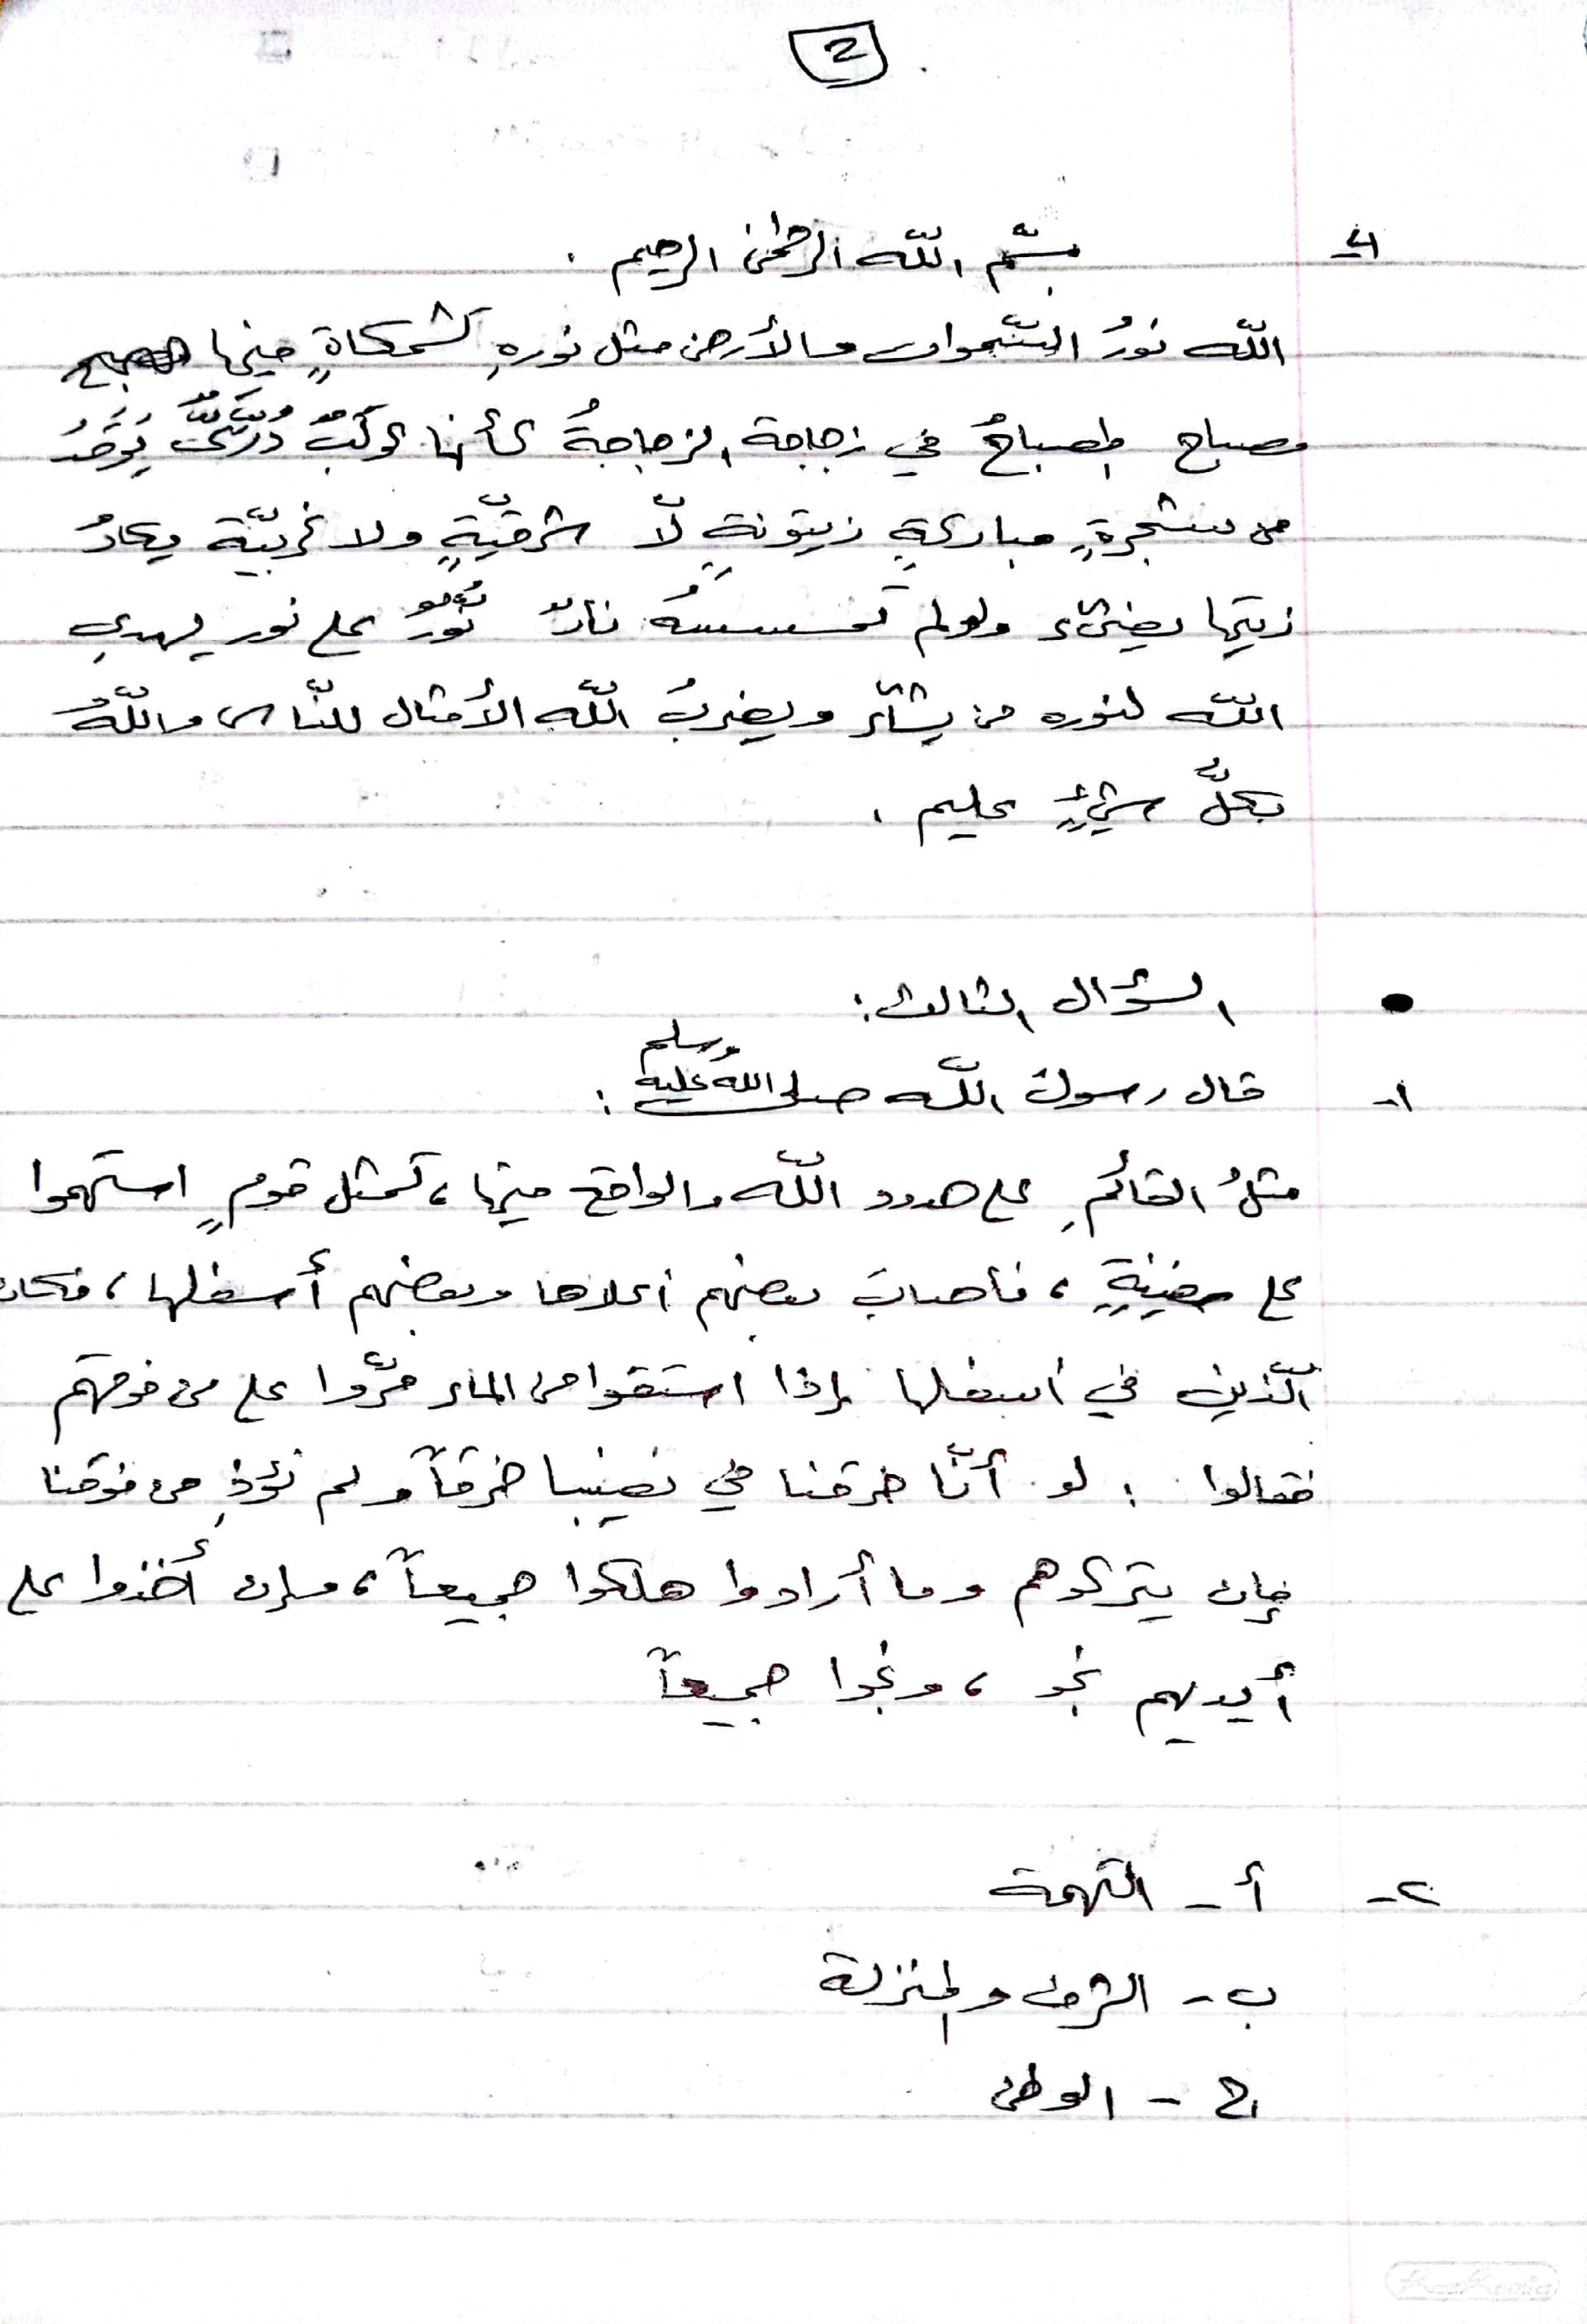 2
٤- بسّم اللّه الرحمٰن الرحيم .
اللّه نورُ السّموات والأرض مثل نورهِ كشمكاةٍ فيها
مصباح المصباحُ في زجاجة الزجاجةُ كأنها كوكبٌ دُرّيٌّ يُوقَدُ
من شجرةٍ مباركةٍ زيتونةٍ لّا شرقيّةٍ ولا غربيّة يكادُ
زيتها يضيء ولو لم تمسسهُ نارٌ نُّورٌ على نور يهدي
اللّه لنوره من يشآء ويضربُ اللّه الأمثال للنّاس واللّهُ
بكلِّ شيءٍ عليم .
• السؤال الثالث :
١- قال رسول اللّه صلى اللّه عليه وسلم :
مثلُ القائمِ على حدود اللّه والواقع فيها ، كمثل قومٍ استهموا
على سفينةٍ ، فأصابَ بعضهم أعلاها وبعضهم أسفلها ، فكان
الّذين في أسفلها إذا استقوا من الماء مرّوا على من فوقهم
فقالوا : لو أنّا خرقنا في نصيبنا خرقاً ولم نؤذِ من فوقنا
فإن يتركوهم وما أرادوا هلكوا جميعاً ، وإن أخذوا على
أيديهم نجو ، ونجوا جميعاً
٢- أ - التهمة
ب - الشرف والمنزلة
ج - الوطن